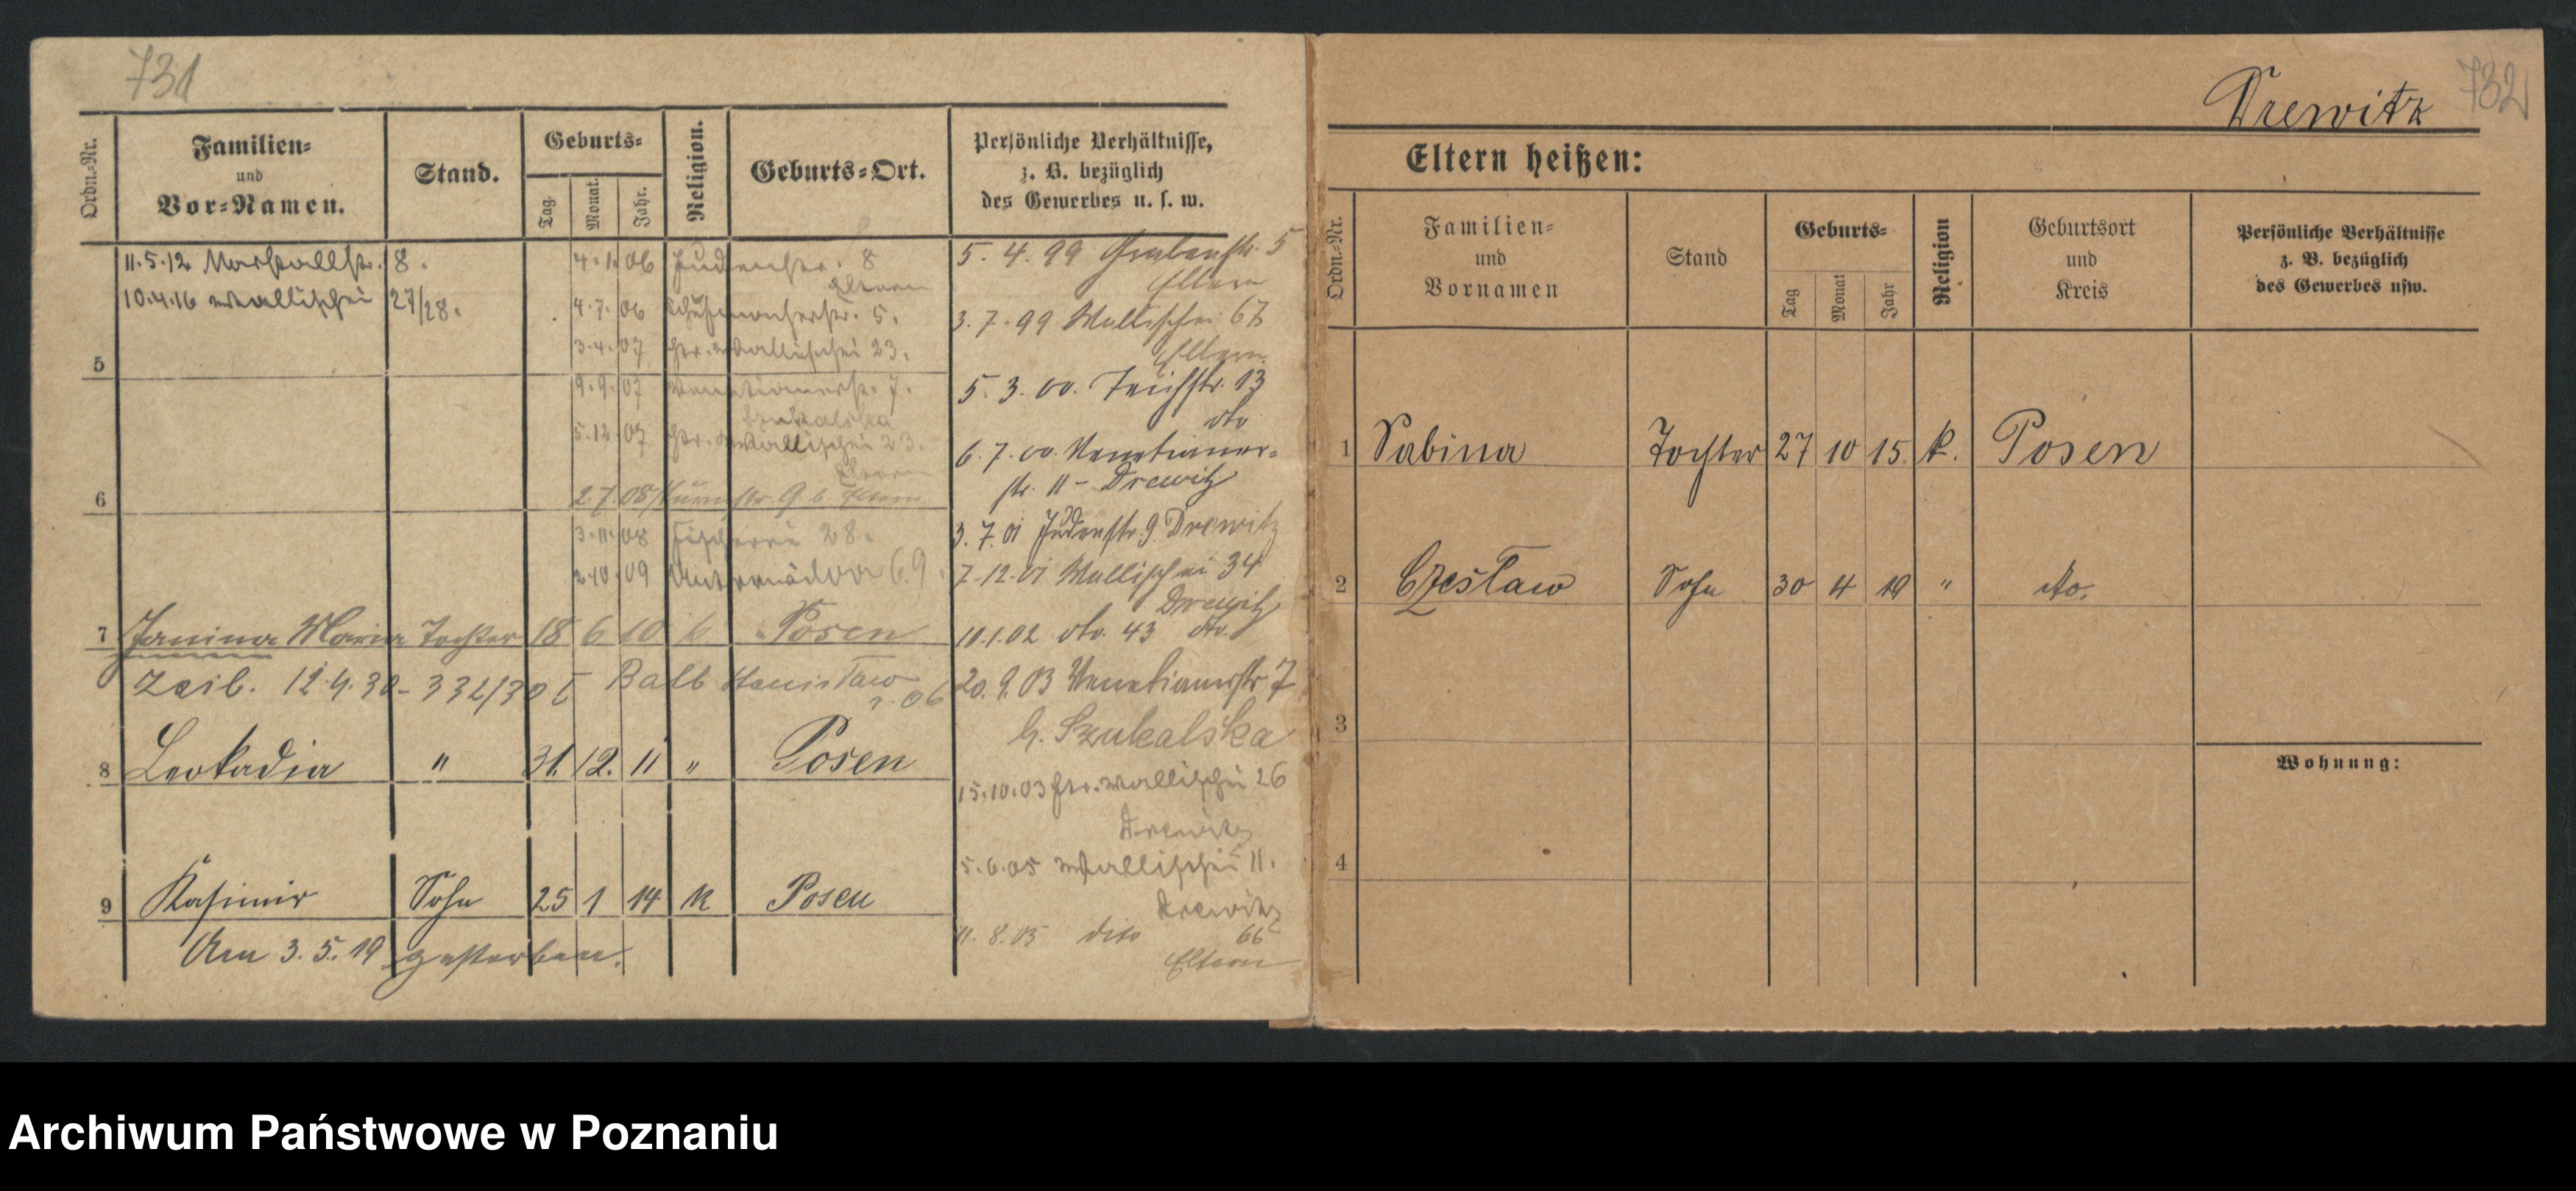 731
Ordn.-Nr.
Familien-
und
Vor-Namen.
Stand.
Geburts-
Tag.
Monat.
Jahr.
Religion.
Geburts-Ort.
Persönliche Verhältnisse,
z. B. bezüglich
des Gewerbes u. s. w.
11.5.12 Marstallstr. 8.
10.4.16 Wallischei 27/28.
4.1.06 Judenstr. 8
Eltern
4.7.06 Schuhmacherstr. 5.
3.4.07 Htr. Wallischei 23.
5
9.9.07 Venetianerstr. 7.
Szukalska
5.12.07 Htr. Wallischei 23.
Eltern
6
2.7.08 Thurmstr. 9 b. Eltern
3.11.08 Fischerei 28.
2.10.09 69.
7 Janina Maria Tochter 18 6 10 k Posen
12.4.30 - 332/30 Balb Stanisław
06
8 Leokadia " 31. 12. 11 " Posen
9 Kasimir Sohn 25 1 14 k Posen
Am 3.5.19 gestorben.
5.4.99 Grabenstr. 5
Eltern
3.7.99 Wallischei 67
Eltern
5.3.00. Teichstr. 13
dto
6.7.00. Venetianer-
str. 11 - Drewitz
3.7.01 Judenstr. 9. Drewitz
7.12.01 Wallischei 34
Drewitz
10.1.02 dto. 43 dto.
20.9.03 Venetianerstr 7
b. Szukalska
15.10.03 Htr. Wallischei 26
Drewitz
5.6.05 Wallischei 11.
Drewitz
11.8.05 dito 66
Eltern
732
Drewitz
Eltern heißen:
Ordn.-Nr.
Familien-
und
Vornamen
Stand
Geburts-
Tag
Monat
Jahr
Religion
Geburtsort
und
Kreis
Persönliche Verhältnisse
z. B. bezüglich
des Gewerbes usw.
1 Sabina Tochter 27 10 15. k. Posen
2 Czesław Sohn 30 4 19 " dto.
3
Wohnung:
4
Archiwum Państwowe w Poznaniu